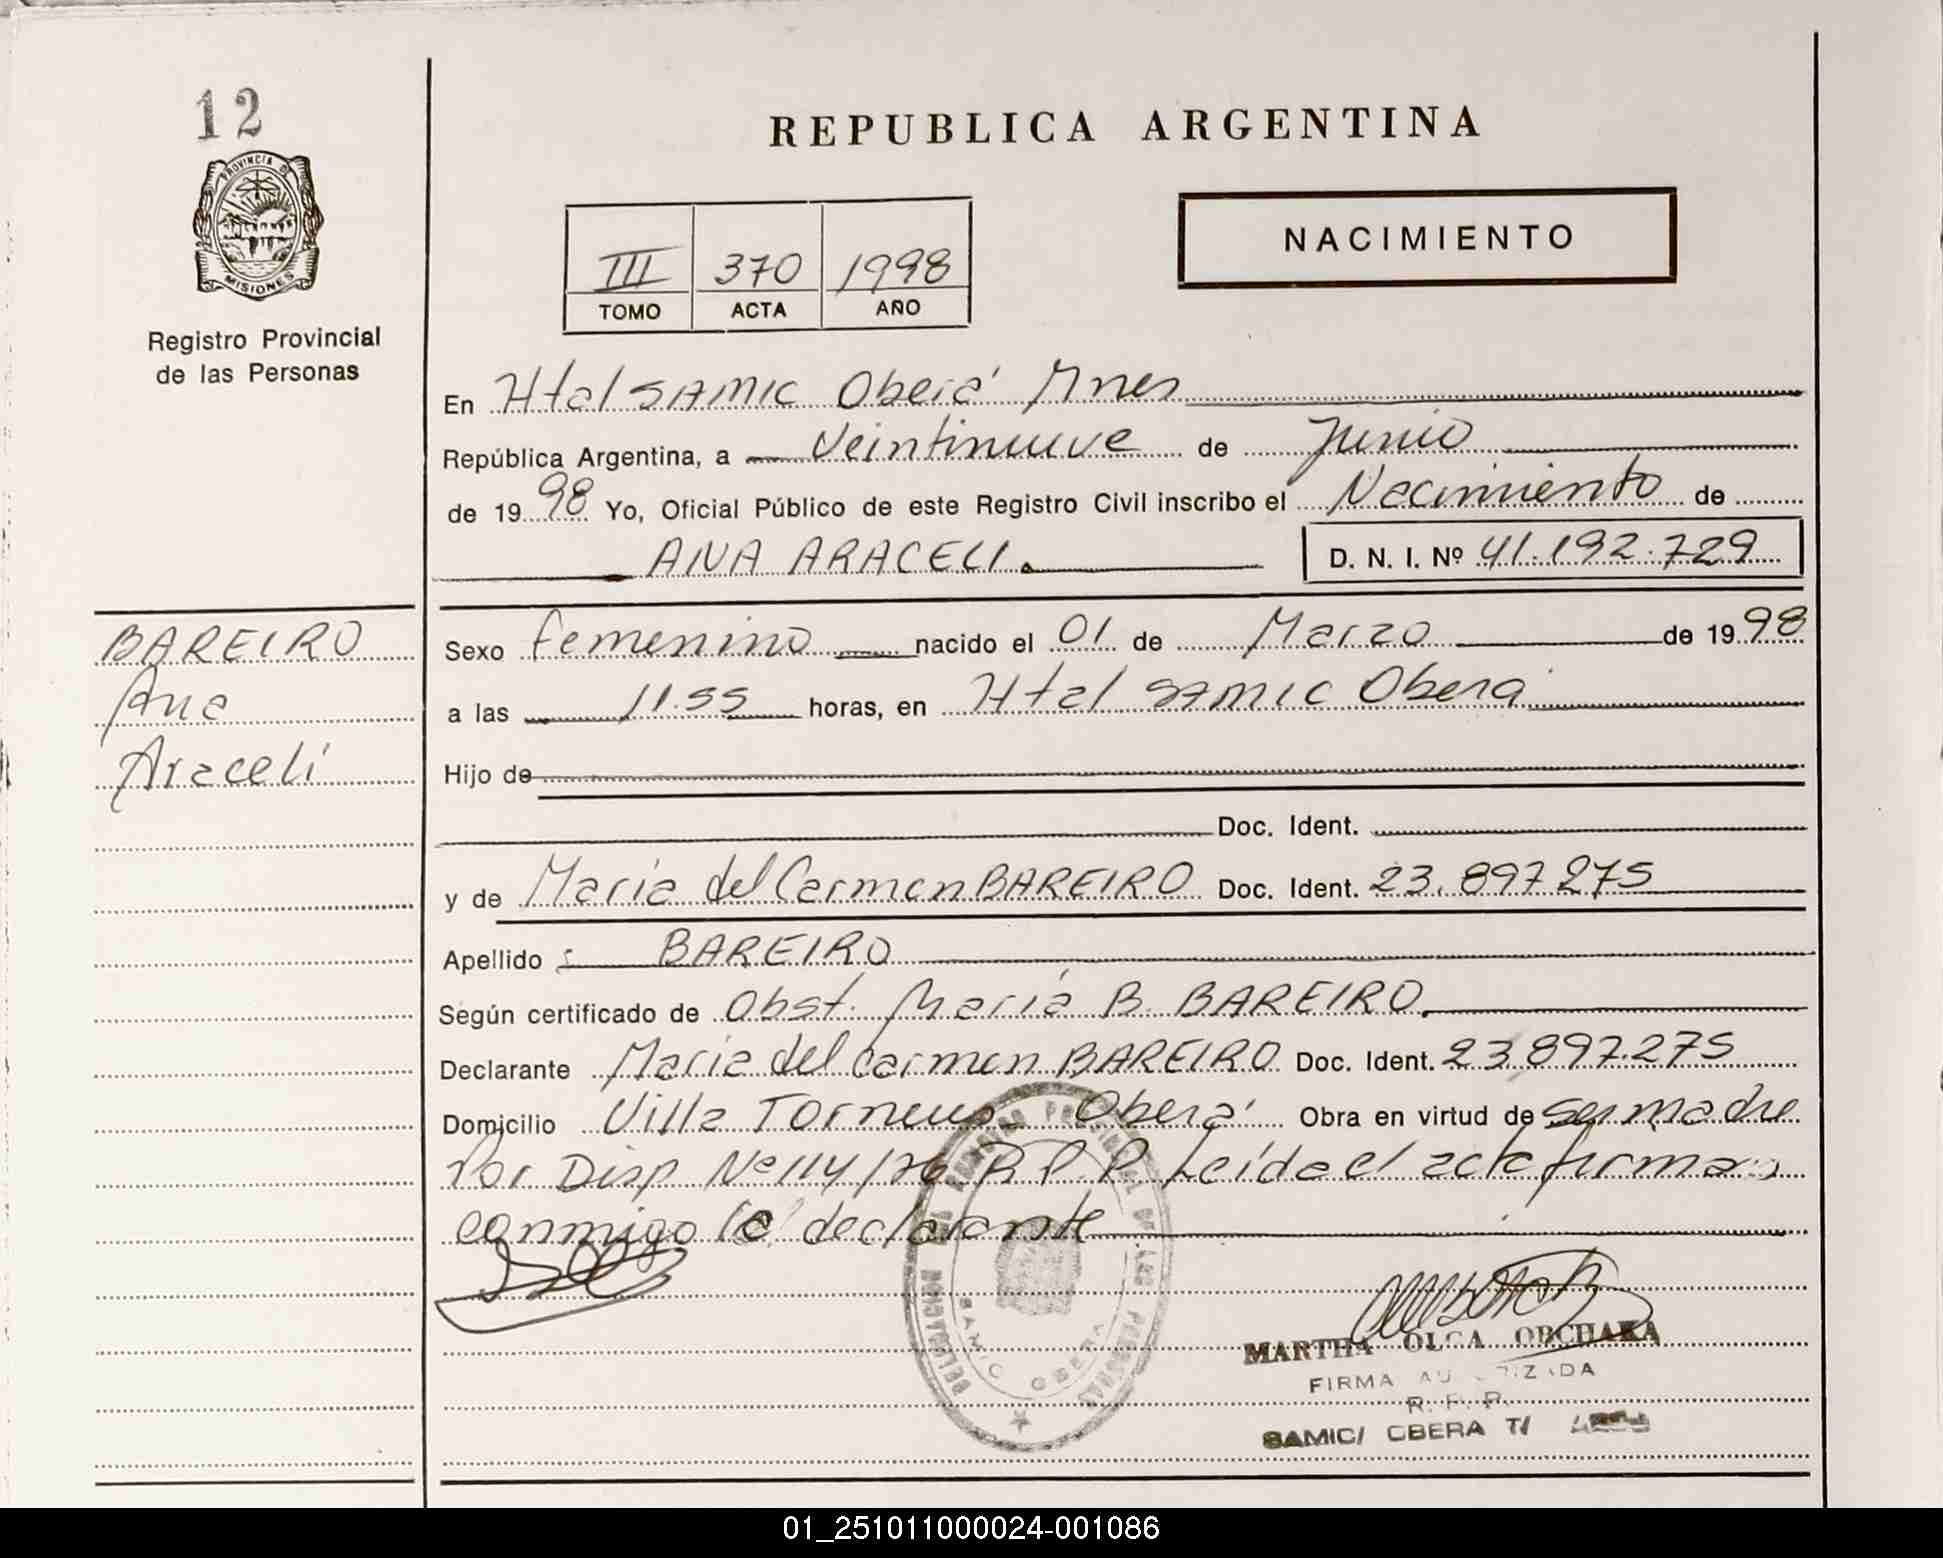 12
PROVINCIA DE
MISIONES
Registro Provincial
de las Personas
REPUBLICA ARGENTINA
III 370 1998
TOMO ACTA AÑO
NACIMIENTO
En Htal SAMIC Oberá Mnes
República Argentina, a Veintinueve de Junio
de 1998 Yo, Oficial Público de este Registro Civil inscribo el Nacimiento de
ANA ARACELI. D. N. I. Nº 41.192.729
BAREIRO
Ana
Araceli
Sexo femenino nacido el 01 de Marzo de 1998
a las 11.55 horas, en Htal SAMIC Oberá
Hijo de
Doc. Ident.
y de Maria del Carmen BAREIRO Doc. Ident. 23.897.275
Apellido : BAREIRO
Según certificado de Obst. María B. BAREIRO.
Declarante Maria del Carmen BAREIRO Doc. Ident. 23.897.275
Domicilio Villa Torneus Oberá Obra en virtud de ser madre
Por Disp Nº 114/76 R P P Leída el acta firma
conmigo la declarante
SAMIC OBERA
MARTHA OLGA
FIRMA AUTORIZADA
R. P. P.
SAMIC/ OBERA T/
01_251011000024-001086